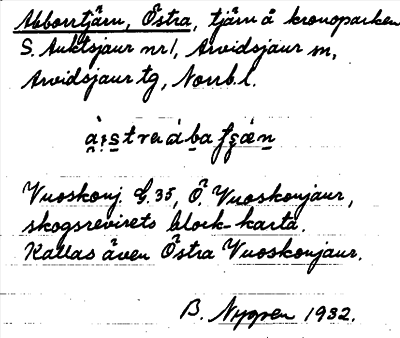 Abborrtjärn, Östra, tjärn å kronoparken
S. Auktsjaur nr 1, Arvidsjaur sn,
Arvidsjaur tg, Norrb. l.
Vuoskonj. E. 35, Ö. Vuoskonjaur,
skogsrevirets block-karta.
Kallas även Östra Vuoskonjaur.
B. Nygren 1932.